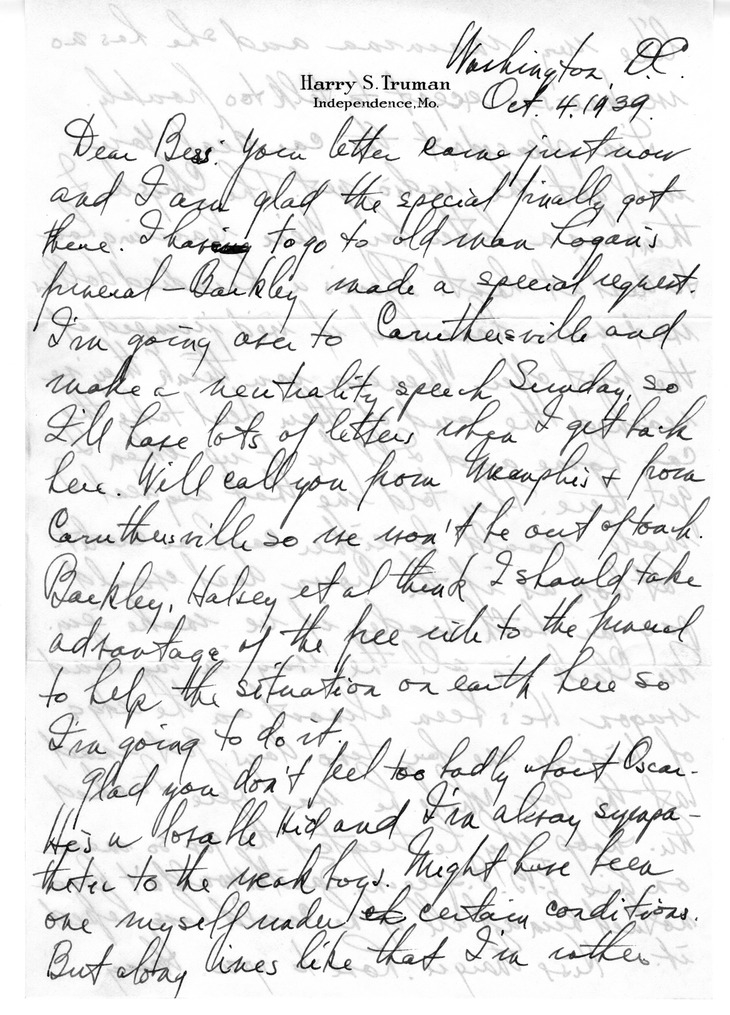 Washington, D.C.
Harry S. Truman
Independence, Mo.
Oct. 4, 1939.
Dear Bess: Your letter came just now
and I am glad the special finally got
there. I have to go to old man Logan's
funeral – Barkley made a special request.
I'm going over to Caruthersville and
make a neutrality speech Sunday, so
I'll have lots of letters when I get back
here. Will call you from Memphis & from
Caruthersville so we won't be out of touch.
Barkley, Halsey et al think I should take
advantage of the free ride to the funeral
to help the situation on earth here so
I'm going to do it.
Glad you don't feel too badly about Oscar.
He's a lovable kid and I'm alway sympa-
thetic to the weak boys. Might have been
one myself under certain conditions.
But along lines like that I'm rather